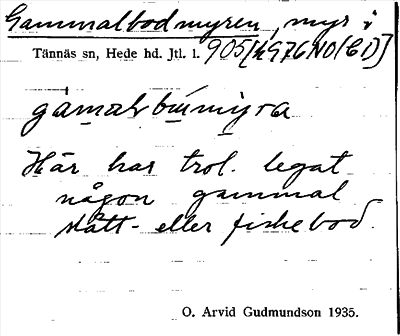 Gammalbodmyren, myr i
Tännäs sn, Hede hd. Jtl. l. 905[h976NO(CD)]
gamalbumyra
Här har trol. legat
någon gammal
slått- eller fiskebod.
O. Arvid Gudmundson 1935.